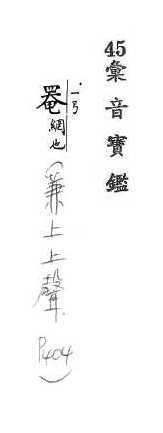 45彙音寶鑑
罨一弓網也(兼上上聲P404)